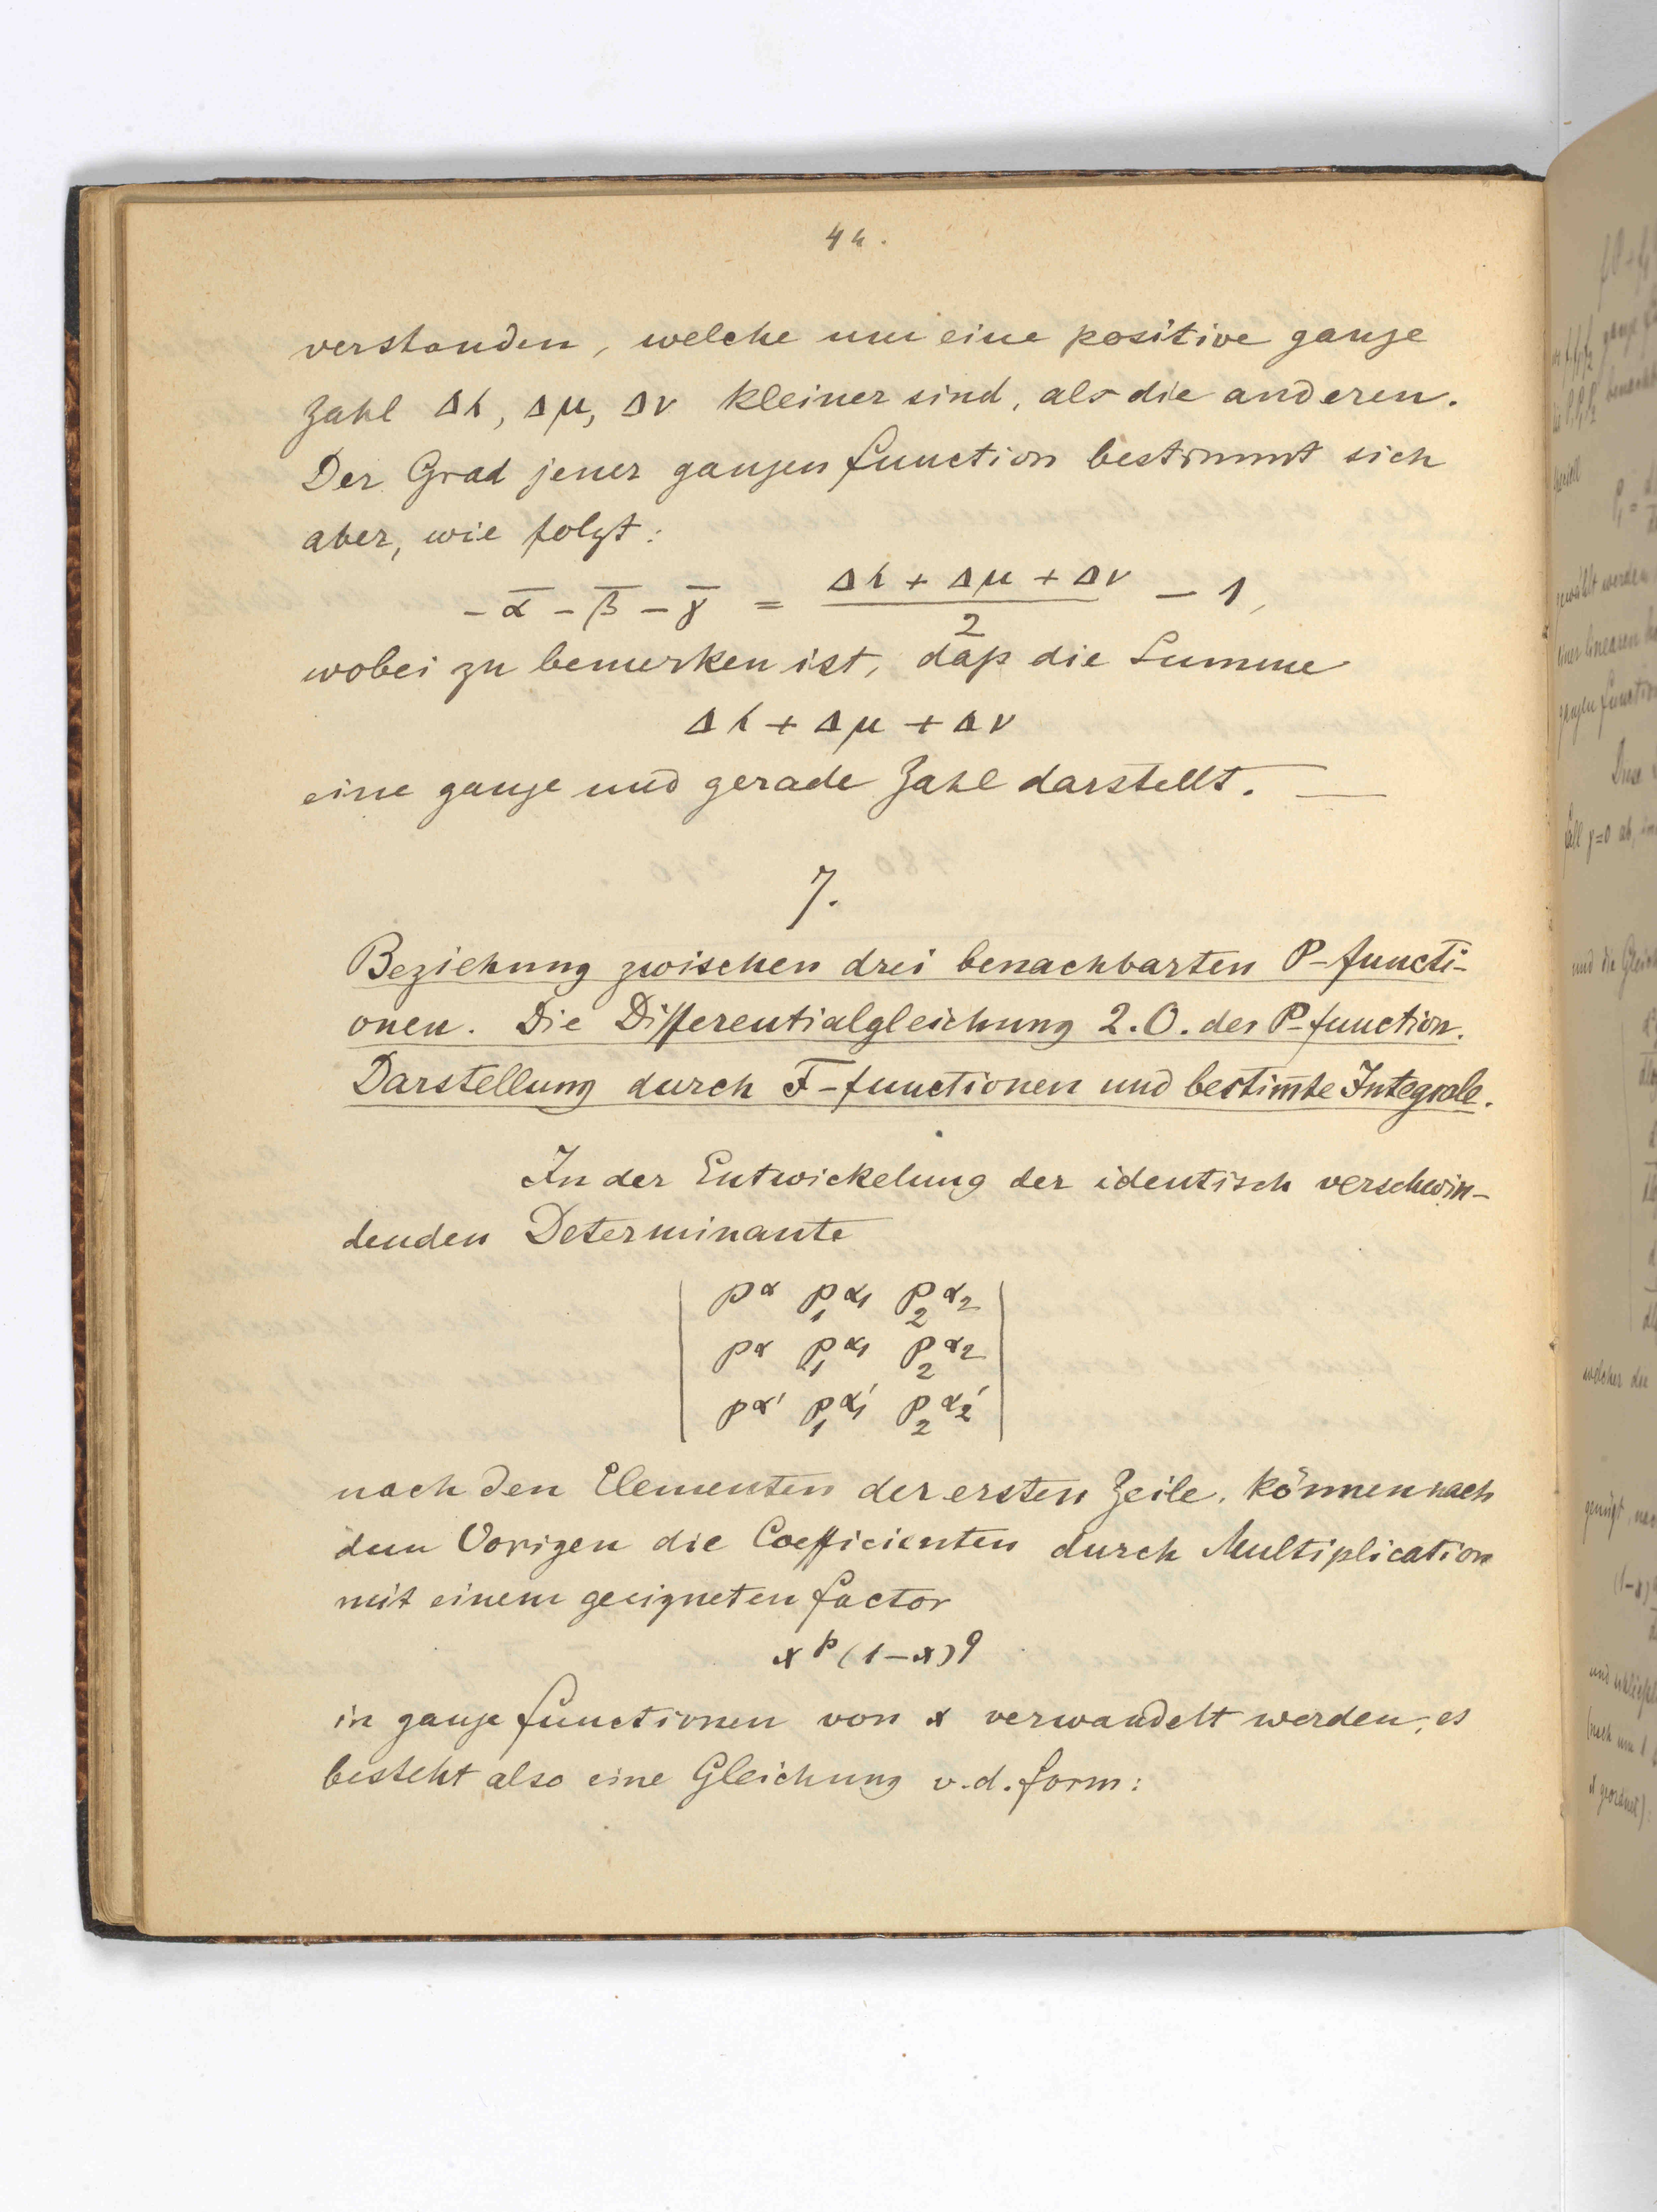 44.
verstanden, welche um eine positive ganze
Zahl Δλ, Δμ, Δν kleiner sind, als die anderen.
Der Grad jener ganzen Function bestimmt sich
aber, wie folgt:
−ᾱ − β̄ − γ̄ = (Δλ + Δμ + Δν)/2 − 1,
wobei zu bemerken ist, daß die Summe
Δλ + Δμ + Δν
eine ganze und gerade Zahl darstellt. —
7.
Beziehung zwischen drei benachbarten P-Functi-
onen. Die Differentialgleichung 2.O. der P-function.
Darstellung durch F-functionen und bestim̄te Integrale.
In der Entwickelung der identisch verschwin-
denden Determinante
| P^α P₁^α₁ P₂^α₂ |
| P^α P₁^α₁ P₂^α₂ |
| P^α' P₁^α₁' P₂^α₂' |
nach den Elementen der ersten Zeile, können nach
dem Vorigen die Coefficienten durch Multiplication
mit einem geeigneten Factor
x^p (1−x)^q
in ganze Functionen von x verwandelt werden; es
besteht also eine Gleichung v. d. Form: